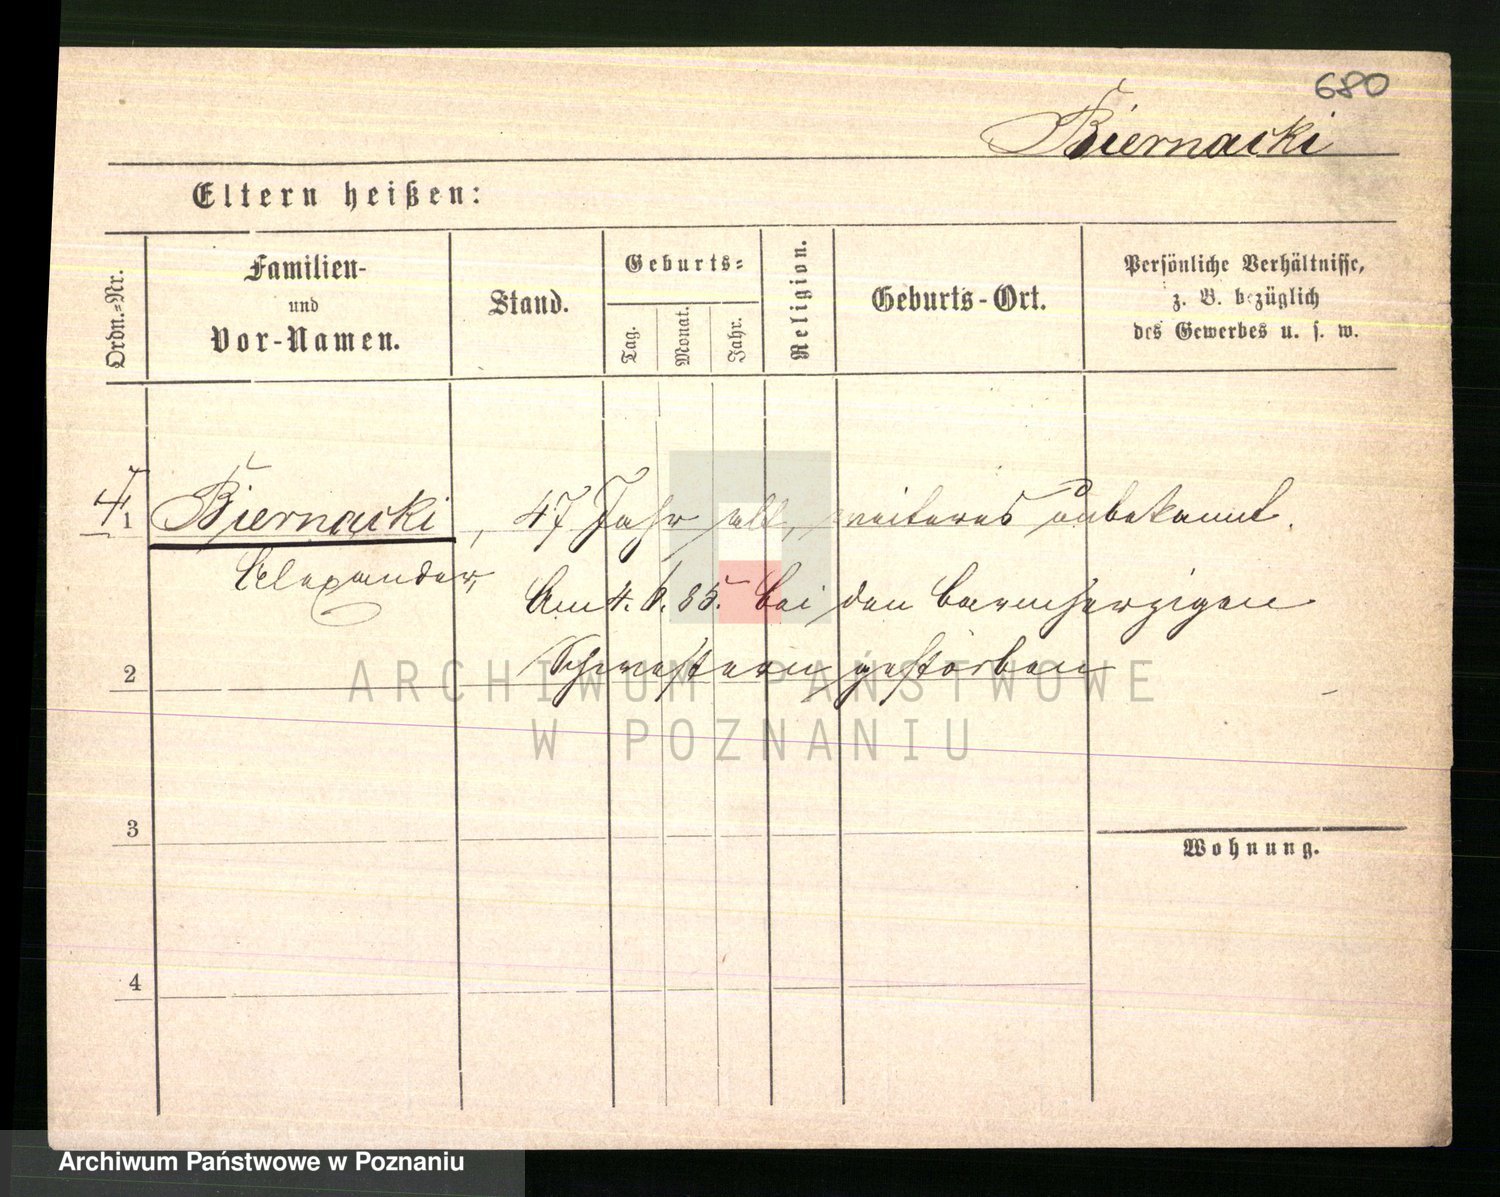 680
Biernacki
Eltern heißen:
Ordn.-Nr.
Familien-
und
Vor-Namen.
Stand.
Geburts-
Tag.
Monat.
Jahr.
Religion.
Geburts-Ort.
Persönliche Verhältnisse,
z. B. bezüglich
des Gewerbes u. s. w.
1
Biernacki, 47 Jahr alt, weiteres unbekannt.
Alexander,
Am 4. 6. 85. bei den barmherzigen
Schwestern gestorben
2
ARCHIWUM PAŃSTWOWE
W POZNANIU
3
Wohnung.
4
Archiwum Państwowe w Poznaniu